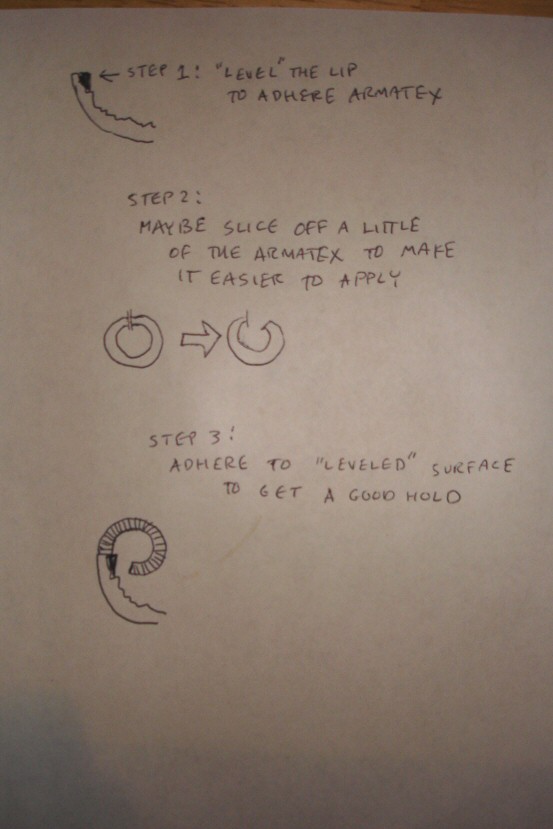 ← STEP 1: "LEVEL" THE LIP
TO ADHERE ARMATEX
STEP 2:
MAYBE SLICE OFF A LITTLE
OF THE ARMATEX TO MAKE
IT EASIER TO APPLY
STEP 3:
ADHERE TO "LEVELED" SURFACE
TO GET A GOOD HOLD